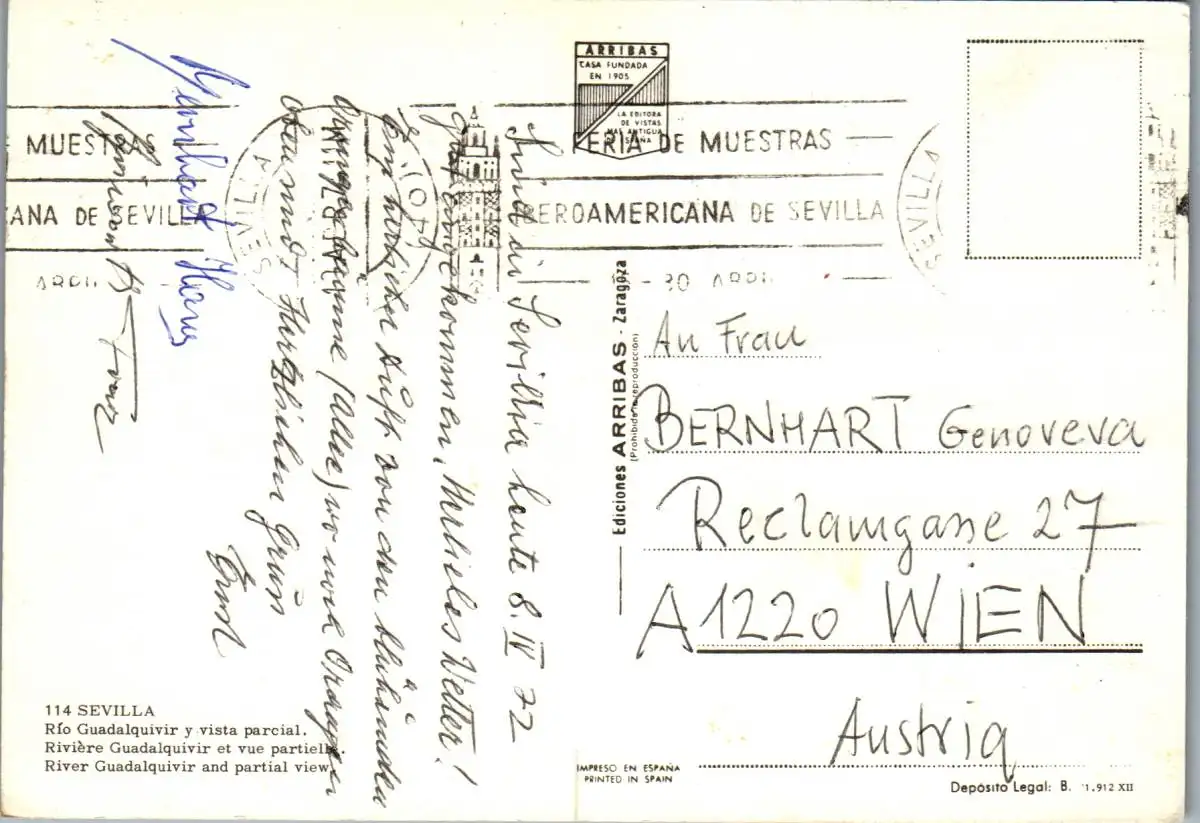 Sind in Sevillia heute 8. IV 72
gut angekommen, Herliches Wetter!
Ein herlicher Duft von den blühenden
(Allee) wo noch Orangen
oben sind! Herzlichen Gruß
Ernst
Bernhart Hans
ARRIBAS
CASA FUNDADA
EN 1905
LA EDITORA
DE VISTAS
MAS ANTIGUA
ESPAÑA
MUESTRAS
ANA DE SEVILLA
SEVILLA
FERIA DE MUESTRAS
IBEROAMERICANA DE SEVILLA
30 ABRIL
SEVILLA
Ediciones ARRIBAS - Zaragoza
(Prohibida la reproducción)
An Frau
BERNHART Genoveva
Reclamgasse 27
A1220 WIEN
Austria
114 SEVILLA
Río Guadalquivir y vista parcial.
Rivière Guadalquivir et vue partielle.
River Guadalquivir and partial view.
IMPRESO EN ESPAÑA
PRINTED IN SPAIN
Depósito Legal: B. 1.912 XII